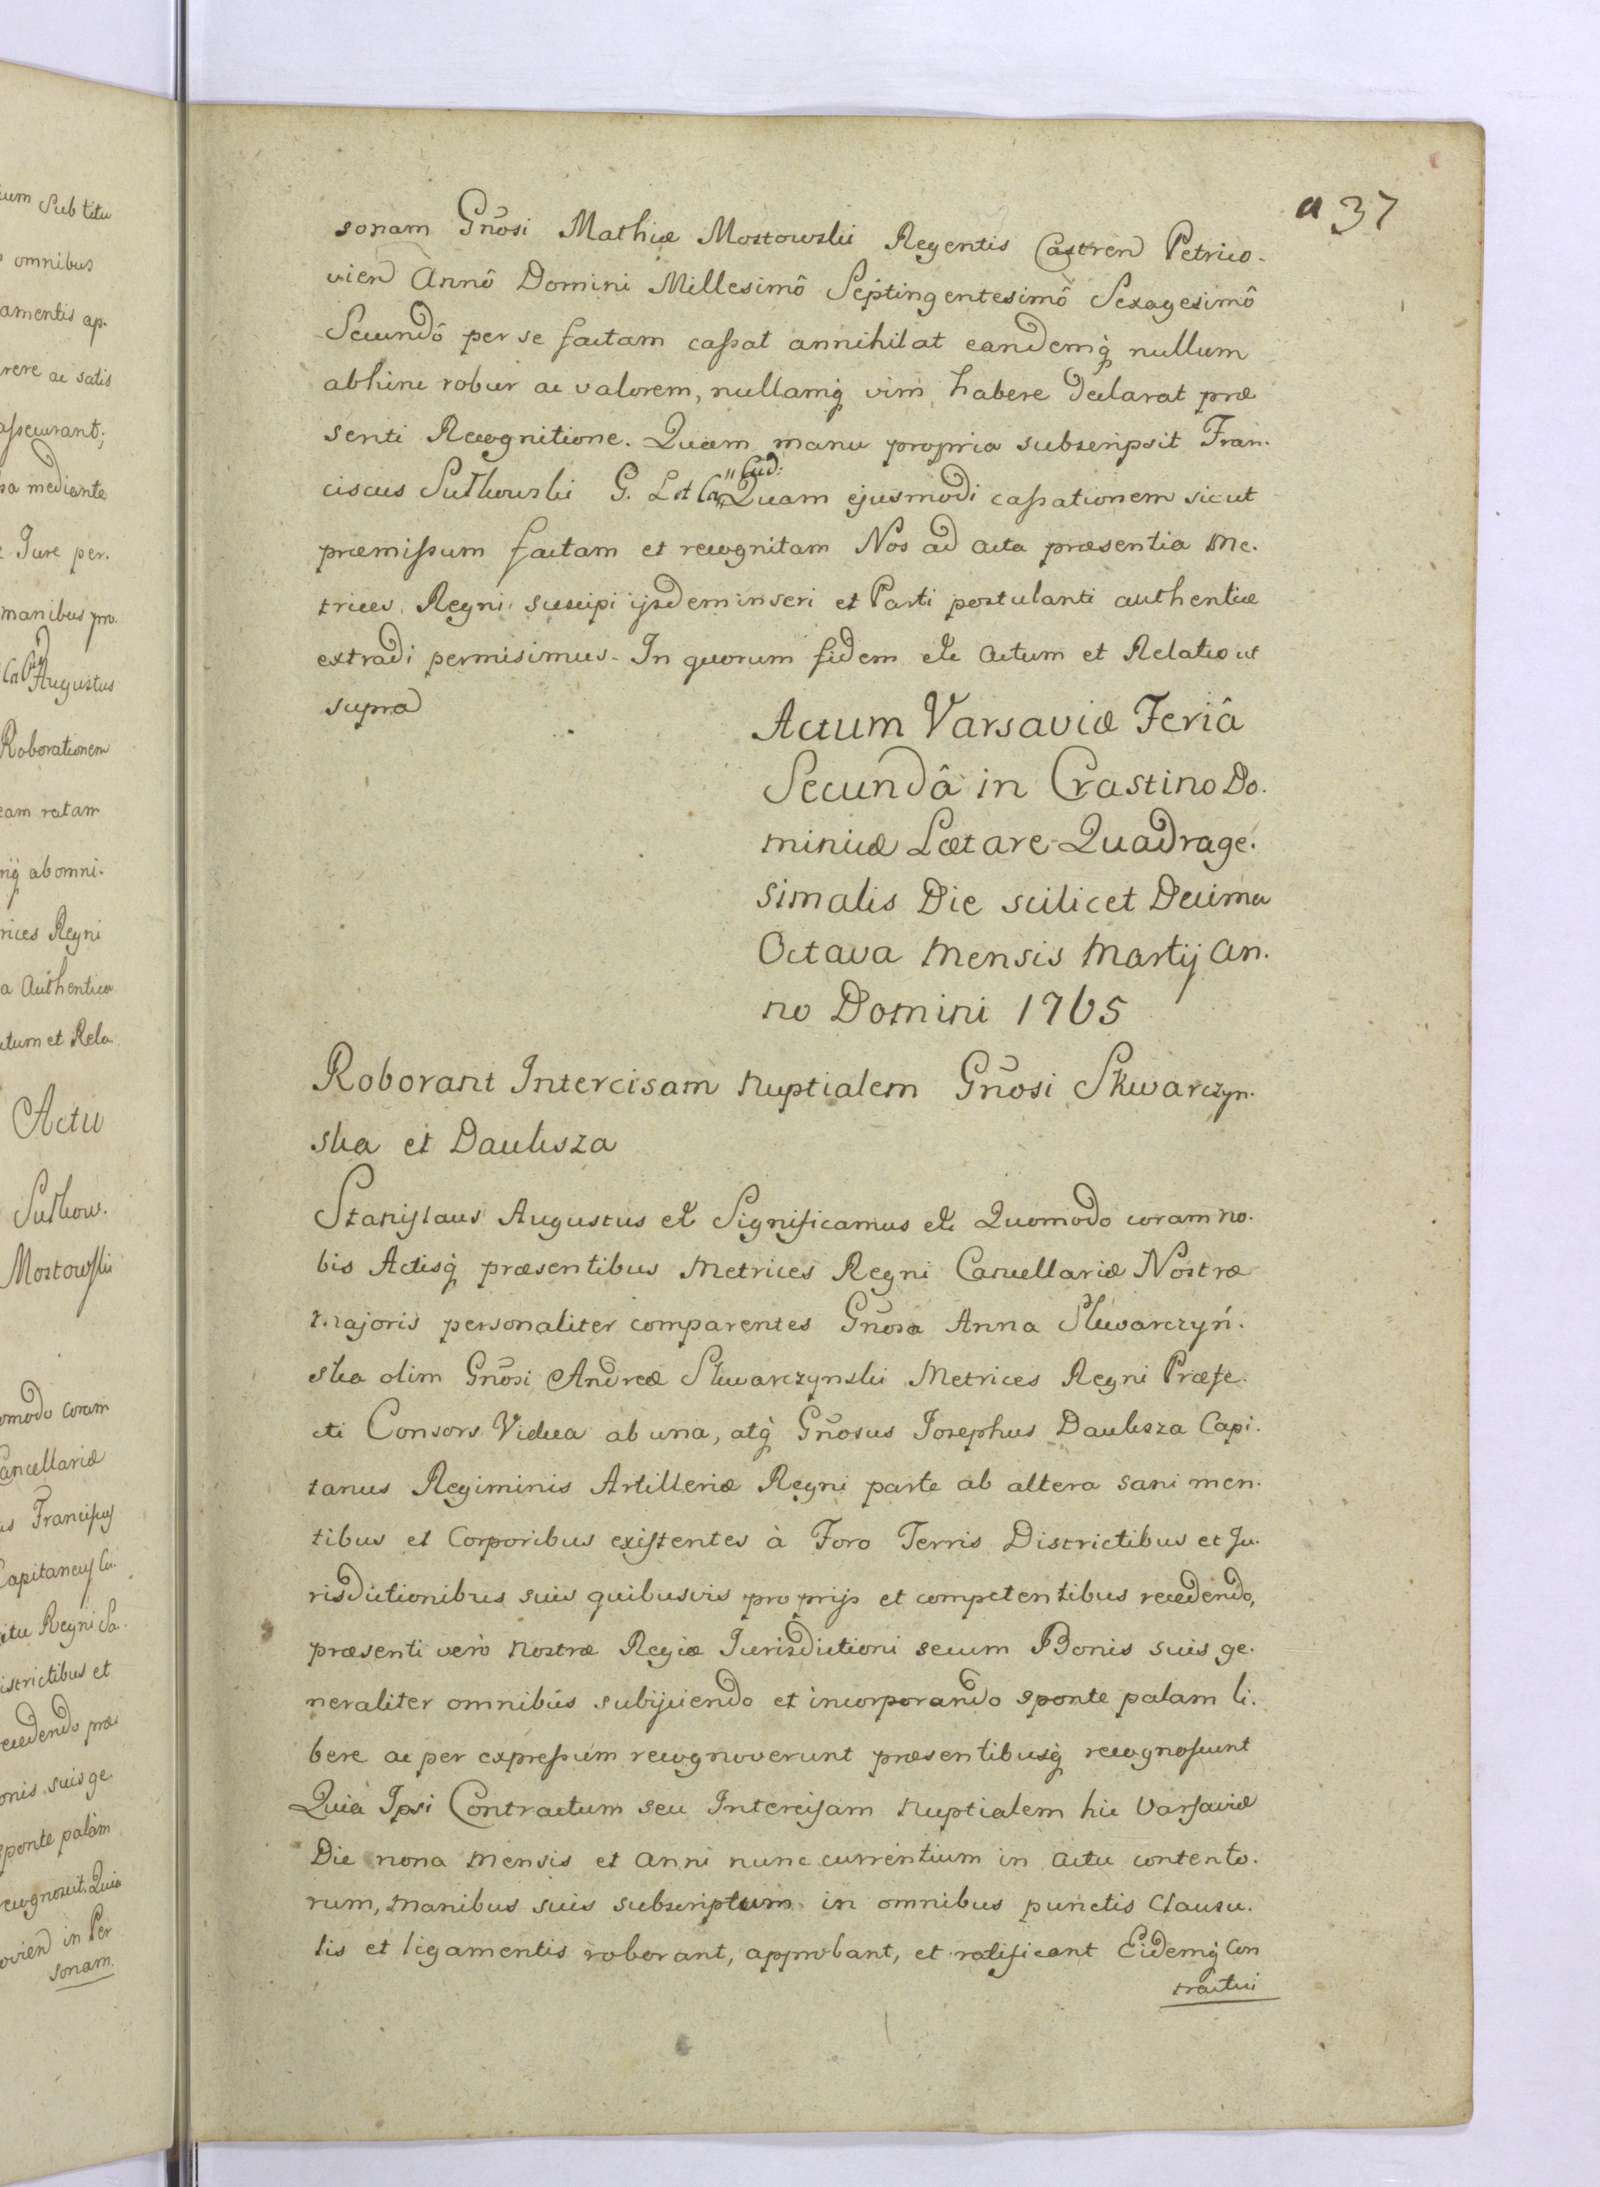 a 37
sonam Gnōsi Mathiæ Mostowski Regentis Castren Petrico-
vien Annô Domini Millesimô Septingentesimô Sexagesimô
Secundô per se factam cassat annihilat eandemq̀ nullum
abhinc robur ac valorem, nullamq̀ vim habere declarat præ
senti Recognitione. Quam manu propria subscripsit Fran-
ciscus Sutkowski G. Quam ejusmodi cassationem sicut
præmissum factam et recognitam Nos ad acta præsentia Me-
trices Regni suscipi ijsdem inseri et Parti postulanti authentice
extradi permisimus. In quorum fidem etc Actum et Relatio ut
supra
Actum Varsaviæ Feriâ
Secundâ in Crastino Do-
minicæ Lætare Quadrage-
simalis Die scilicet Decima
Octava Mensis Martij An-
no Domini 1765
Roborant Intercisam Nuptialem Gnōsi Skwarczyn-
ska et Dauksza
Stanislaus Augustus etc Significamus etc Quomodo coram no-
bis Actisq̀ præsentibus Metrices Regni Cancellariæ Nostræ
Majoris personaliter comparentes Gnōsa Anna Skwarczyń-
ska olim Gnōsi Andreæ Skwarczynski Metrices Regni Præfe-
cti Consors Vidua ab una, atq̀ Gnōsus Josephus Dauksza Capi-
tanus Regiminis Artilleriæ Regni parte ab altera sani men-
tibus et Corporibus existentes à Foro Terris Districtibus et Ju-
risdictionibus suis quibusvis proprijs et competentibus recedendo,
præsenti verò Nostræ Regiæ Jurisdictioni secum Bonis suis ge-
neraliter omnibus subijciendo et incorporando sponte palam li-
bere ac per expressum recognoverunt præsentibusq̀ recognoscunt
Quia Ipsi Contractum seu Intercisam Nuptialem hic Varsaviæ
Die nona Mensis et Anni nunc currentium in actu contento-
rum, manibus suis subscriptum in omnibus punctis Clausu-
lis et ligamentis roborant, approbant, et ratificant Eidemq̀ Con
tractui